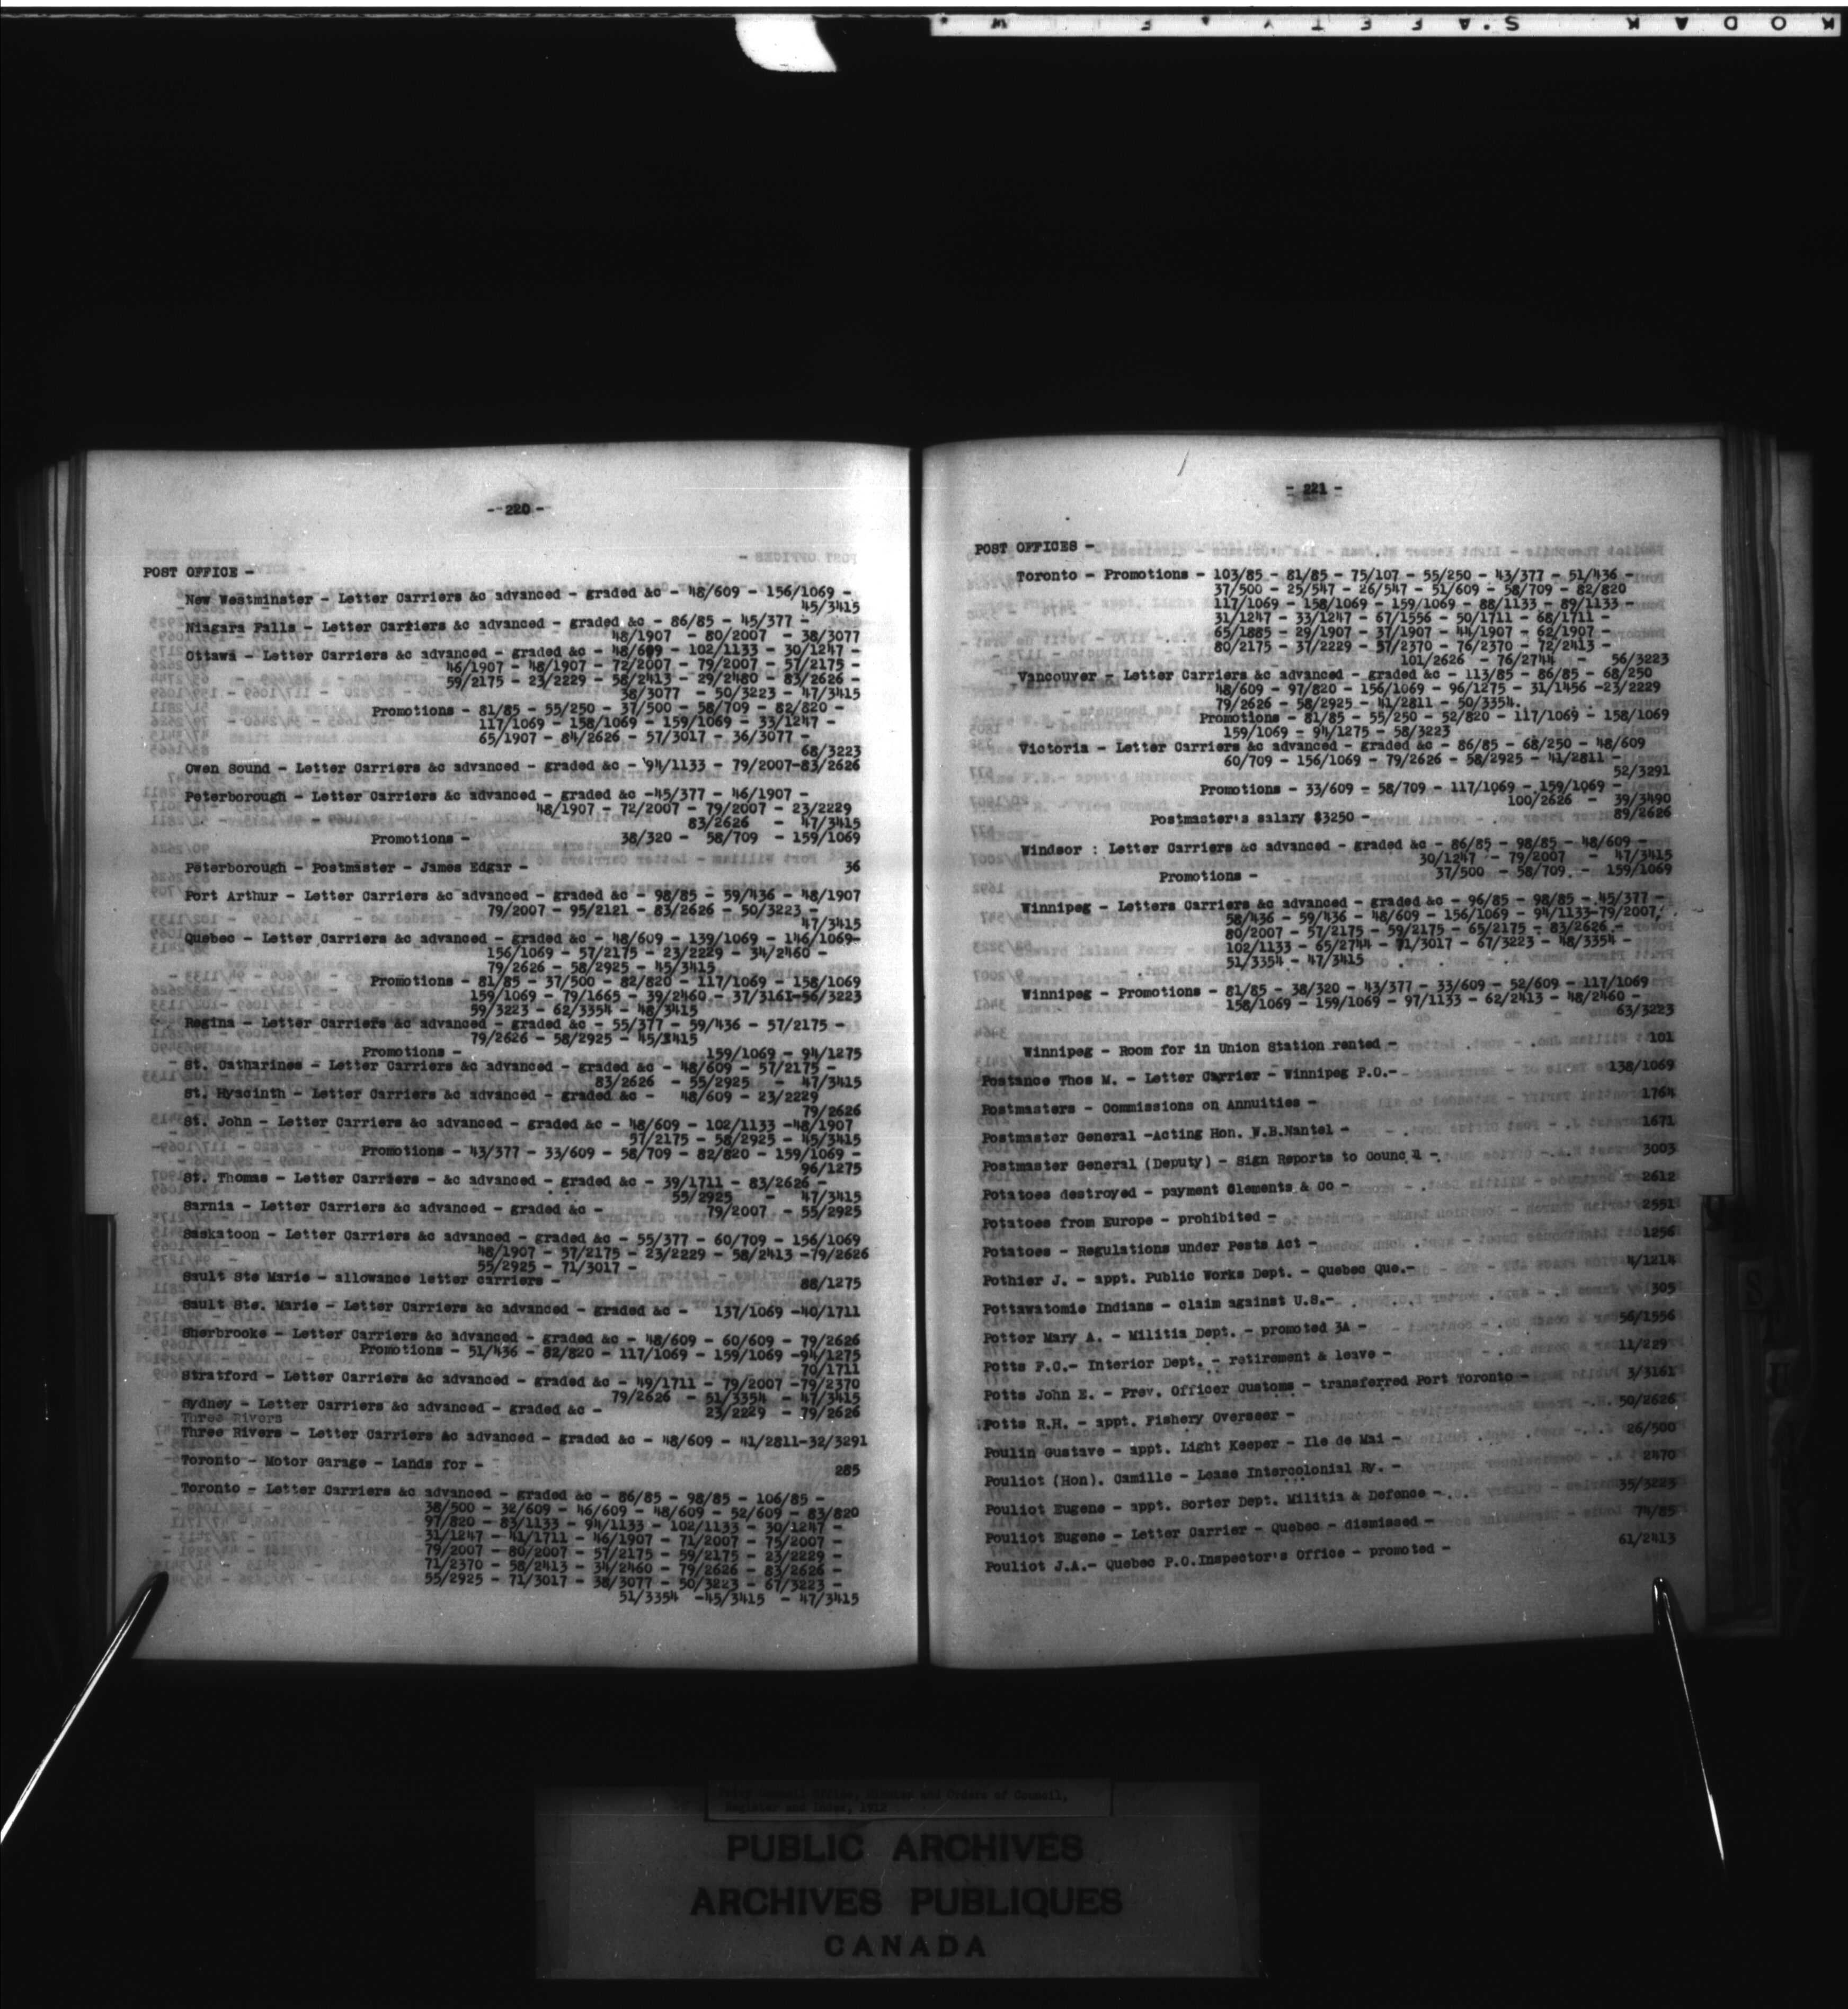 KODAK SAFETY
- 220 -
POST OFFICE -
New Westminster - Letter Carriers &c advanced - graded &c - 48/609 - 156/1069 -
45/3415
Niagara Falls - Letter Carriers &c advanced - graded &c - 86/85 - 45/377 -
48/1907 - 80/2007 - 38/3077
Ottawa - Letter Carriers &c advanced - graded &c - 48/609 - 102/1133 - 30/1247 -
46/1907 - 48/1907 - 72/2007 - 79/2007 - 57/2175 -
59/2175 - 23/2229 - 58/2413 - 29/2480 - 83/2626 -
38/3077 - 50/3223 - 47/3415
Promotions - 81/85 - 55/250 - 37/500 - 58/709 - 82/820 -
117/1069 - 158/1069 - 159/1069 - 33/1247 -
65/1907 - 84/2626 - 57/3017 - 36/3077 -
68/3223
Owen Sound - Letter Carriers &c advanced - graded &c - 94/1133 - 79/2007-83/2626
Peterborough - Letter Carriers &c advanced - graded &c -45/377 - 46/1907 -
48/1907 - 72/2007 - 79/2007 - 23/2229
83/2626 - 47/3415
Promotions - 38/320 - 58/709 - 159/1069
Peterborough - Postmaster - James Edgar - 36
Port Arthur - Letter Carriers &c advanced - graded &c - 98/85 - 59/436 - 48/1907
79/2007 - 95/2121 - 83/2626 - 50/3223 -
47/3415
Quebec - Letter Carriers &c advanced - graded &c - 48/609 - 139/1069 - 146/1069-
156/1069 - 57/2175 - 23/2229 - 34/2460 -
79/2626 - 58/2925 - 45/3415
Promotions - 81/85 - 37/500 - 82/820 - 117/1069 - 158/1069
159/1069 - 79/1665 - 39/2460 - 37/3161-56/3223
59/3223 - 62/3354 - 48/3415
Regina - Letter Carriers &c advanced - graded &c - 55/377 - 59/436 - 57/2175 -
79/2626 - 58/2925 - 45/3415
Promotions - 159/1069 - 94/1275
St. Catharines - Letter Carriers &c advanced - graded &c - 48/609 - 57/2175 -
83/2626 - 55/2925 - 47/3415
St. Hyacinth - Letter Carriers &c advanced - graded &c - 48/609 - 23/2229
79/2626
St. John - Letter Carriers &c advanced - graded &c - 48/609 - 102/1133 -48/1907
57/2175 - 58/2925 - 45/3415
Promotions - 43/377 - 33/609 - 58/709 - 82/820 - 159/1069 -
96/1275
St. Thomas - Letter Carriers - &c advanced - graded &c - 39/1711 - 83/2626 -
55/2925 - 47/3415
Sarnia - Letter Carriers &c advanced - graded &c - 79/2007 - 55/2925
Saskatoon - Letter Carriers &c advanced - graded &c - 55/377 - 60/709 - 156/1069
48/1907 - 57/2175 - 23/2229 - 58/2413 -79/2626
55/2925 - 71/3017 -
Sault Ste Marie - allowance letter carriers - 88/1275
Sault Ste. Marie - Letter Carriers &c advanced - graded &c - 137/1069 -40/1711
Sherbrooke - Letter Carriers &c advanced - graded &c - 48/609 - 60/609 - 79/2626
Promotions - 51/436 - 82/820 - 117/1069 - 159/1069 -94/1275
70/1711
Stratford - Letter Carriers &c advanced - graded &c - 49/1711 - 79/2007 -79/2370
79/2626 - 51/3354 - 47/3415
Sydney - Letter Carriers &c advanced - graded &c - 23/2229 - 79/2626
Three Rivers
Three Rivers - Letter Carriers &c advanced - graded &c - 48/609 - 41/2811-32/3291
Toronto - Motor Garage - Lands for - 285
Toronto - Letter Carriers &c advanced - graded &c - 86/85 - 98/85 - 106/85 -
38/500 - 32/609 - 46/609 - 48/609 - 52/609 - 83/820
97/820 - 83/1133 - 94/1133 - 102/1133 - 30/1247 -
31/1247 - 41/1711 - 46/1907 - 71/2007 - 75/2007 -
79/2007 - 80/2007 - 57/2175 - 59/2175 - 23/2229 -
71/2370 - 58/2413 - 34/2460 - 79/2626 - 83/2626 -
55/2925 - 71/3017 - 38/3077 - 50/3223 - 67/3223 -
51/3354 -45/3415 - 47/3415
- 221 -
POST OFFICES -
Toronto - Promotions - 103/85 - 81/85 - 75/107 - 55/250 - 43/377 - 51/436 -
37/500 - 25/547 - 26/547 - 51/609 - 58/709 - 82/820
117/1069 - 158/1069 - 159/1069 - 88/1133 - 89/1133 -
31/1247 - 33/1247 - 67/1556 - 50/1711 - 68/1711 -
65/1885 - 29/1907 - 37/1907 - 44/1907 - 62/1907 -
80/2175 - 37/2229 - 57/2370 - 76/2370 - 72/2413 -
101/2626 - 76/2744 - 56/3223
Vancouver - Letter Carriers &c advanced - graded &c - 113/85 - 86/85 - 68/250
48/609 - 97/820 - 156/1069 - 96/1275 - 31/1456 -23/2229
79/2626 - 58/2925 - 41/2811 - 50/3354.
Promotions - 81/85 - 55/250 - 52/820 - 117/1069 - 158/1069
159/1069 - 94/1275 - 58/3223
Victoria - Letter Carriers &c advanced - graded &c - 86/85 - 68/250 - 48/609
60/709 - 156/1069 - 79/2626 - 58/2925 - 41/2811 -
52/3291
Promotions - 33/609 - 58/709 - 117/1069 - 159/1069 -
100/2626 - 39/3490
Postmaster's salary $3250 - 89/2626
Windsor : Letter Carriers &c advanced - graded &c - 86/85 - 98/85 - 48/609 -
30/1247 - 79/2007 - 47/3415
Promotions - 37/500 - 58/709 - 159/1069
Winnipeg - Letters Carriers &c advanced - graded &c - 96/85 - 98/85 - 45/377 -
58/436 - 59/436 - 48/609 - 156/1069 - 94/1133-79/2007,
80/2007 - 57/2175 - 59/2175 - 65/2175 - 83/2626 -
102/1133 - 65/2744 - 71/3017 - 67/3223 - 48/3354 -
51/3354 - 47/3415
Winnipeg - Promotions - 81/85 - 38/320 - 43/377 - 33/609 - 52/609 - 117/1069
158/1069 - 159/1069 - 97/1133 - 62/2413 - 48/2460 -
63/3223
Winnipeg - Room for in Union Station rented - 101
Postance Thos M. - Letter Carrier - Winnipeg P.O.- 138/1069
Postmasters - Commissions on Annuities - 1764
Postmaster General -Acting Hon. W.B.Nantel - 1671
Postmaster General (Deputy) - Sign Reports to Council - 3003
Potatoes destroyed - payment Clements & Co - 2612
Potatoes from Europe - prohibited - 2551
Potatoes - Regulations under Pests Act - 1256
Pothier J. - appt. Public Works Dept. - Quebec Que.- 4/1214
Pottawatomie Indians - claim against U.S.- 305
Potter Mary A. - Militia Dept. - promoted 3A - 56/1556
Potts F.C.- Interior Dept. - retirement & leave - 11/229
Potts John E. - Prev. Officer Customs - transferred Port Toronto - 3/3161
Potts R.H. - appt. Fishery Overseer - 50/2626
Poulin Gustave - appt. Light Keeper - Ile de Mai - 26/500
Pouliot (Hon). Camille - Lease Intercolonial Ry. - 2470
Pouliot Eugene - appt. Sorter Dept. Militia & Defence - 35/3223
Pouliot Eugene - Letter Carrier - Quebec - dismissed - 74/85
Pouliot J.A.- Quebec P.O.Inspector's Office - promoted - 61/2413
Privy Council Office, Minutes and Orders of Council,
Register and Index, 1912
PUBLIC ARCHIVES
ARCHIVES PUBLIQUES
CANADA